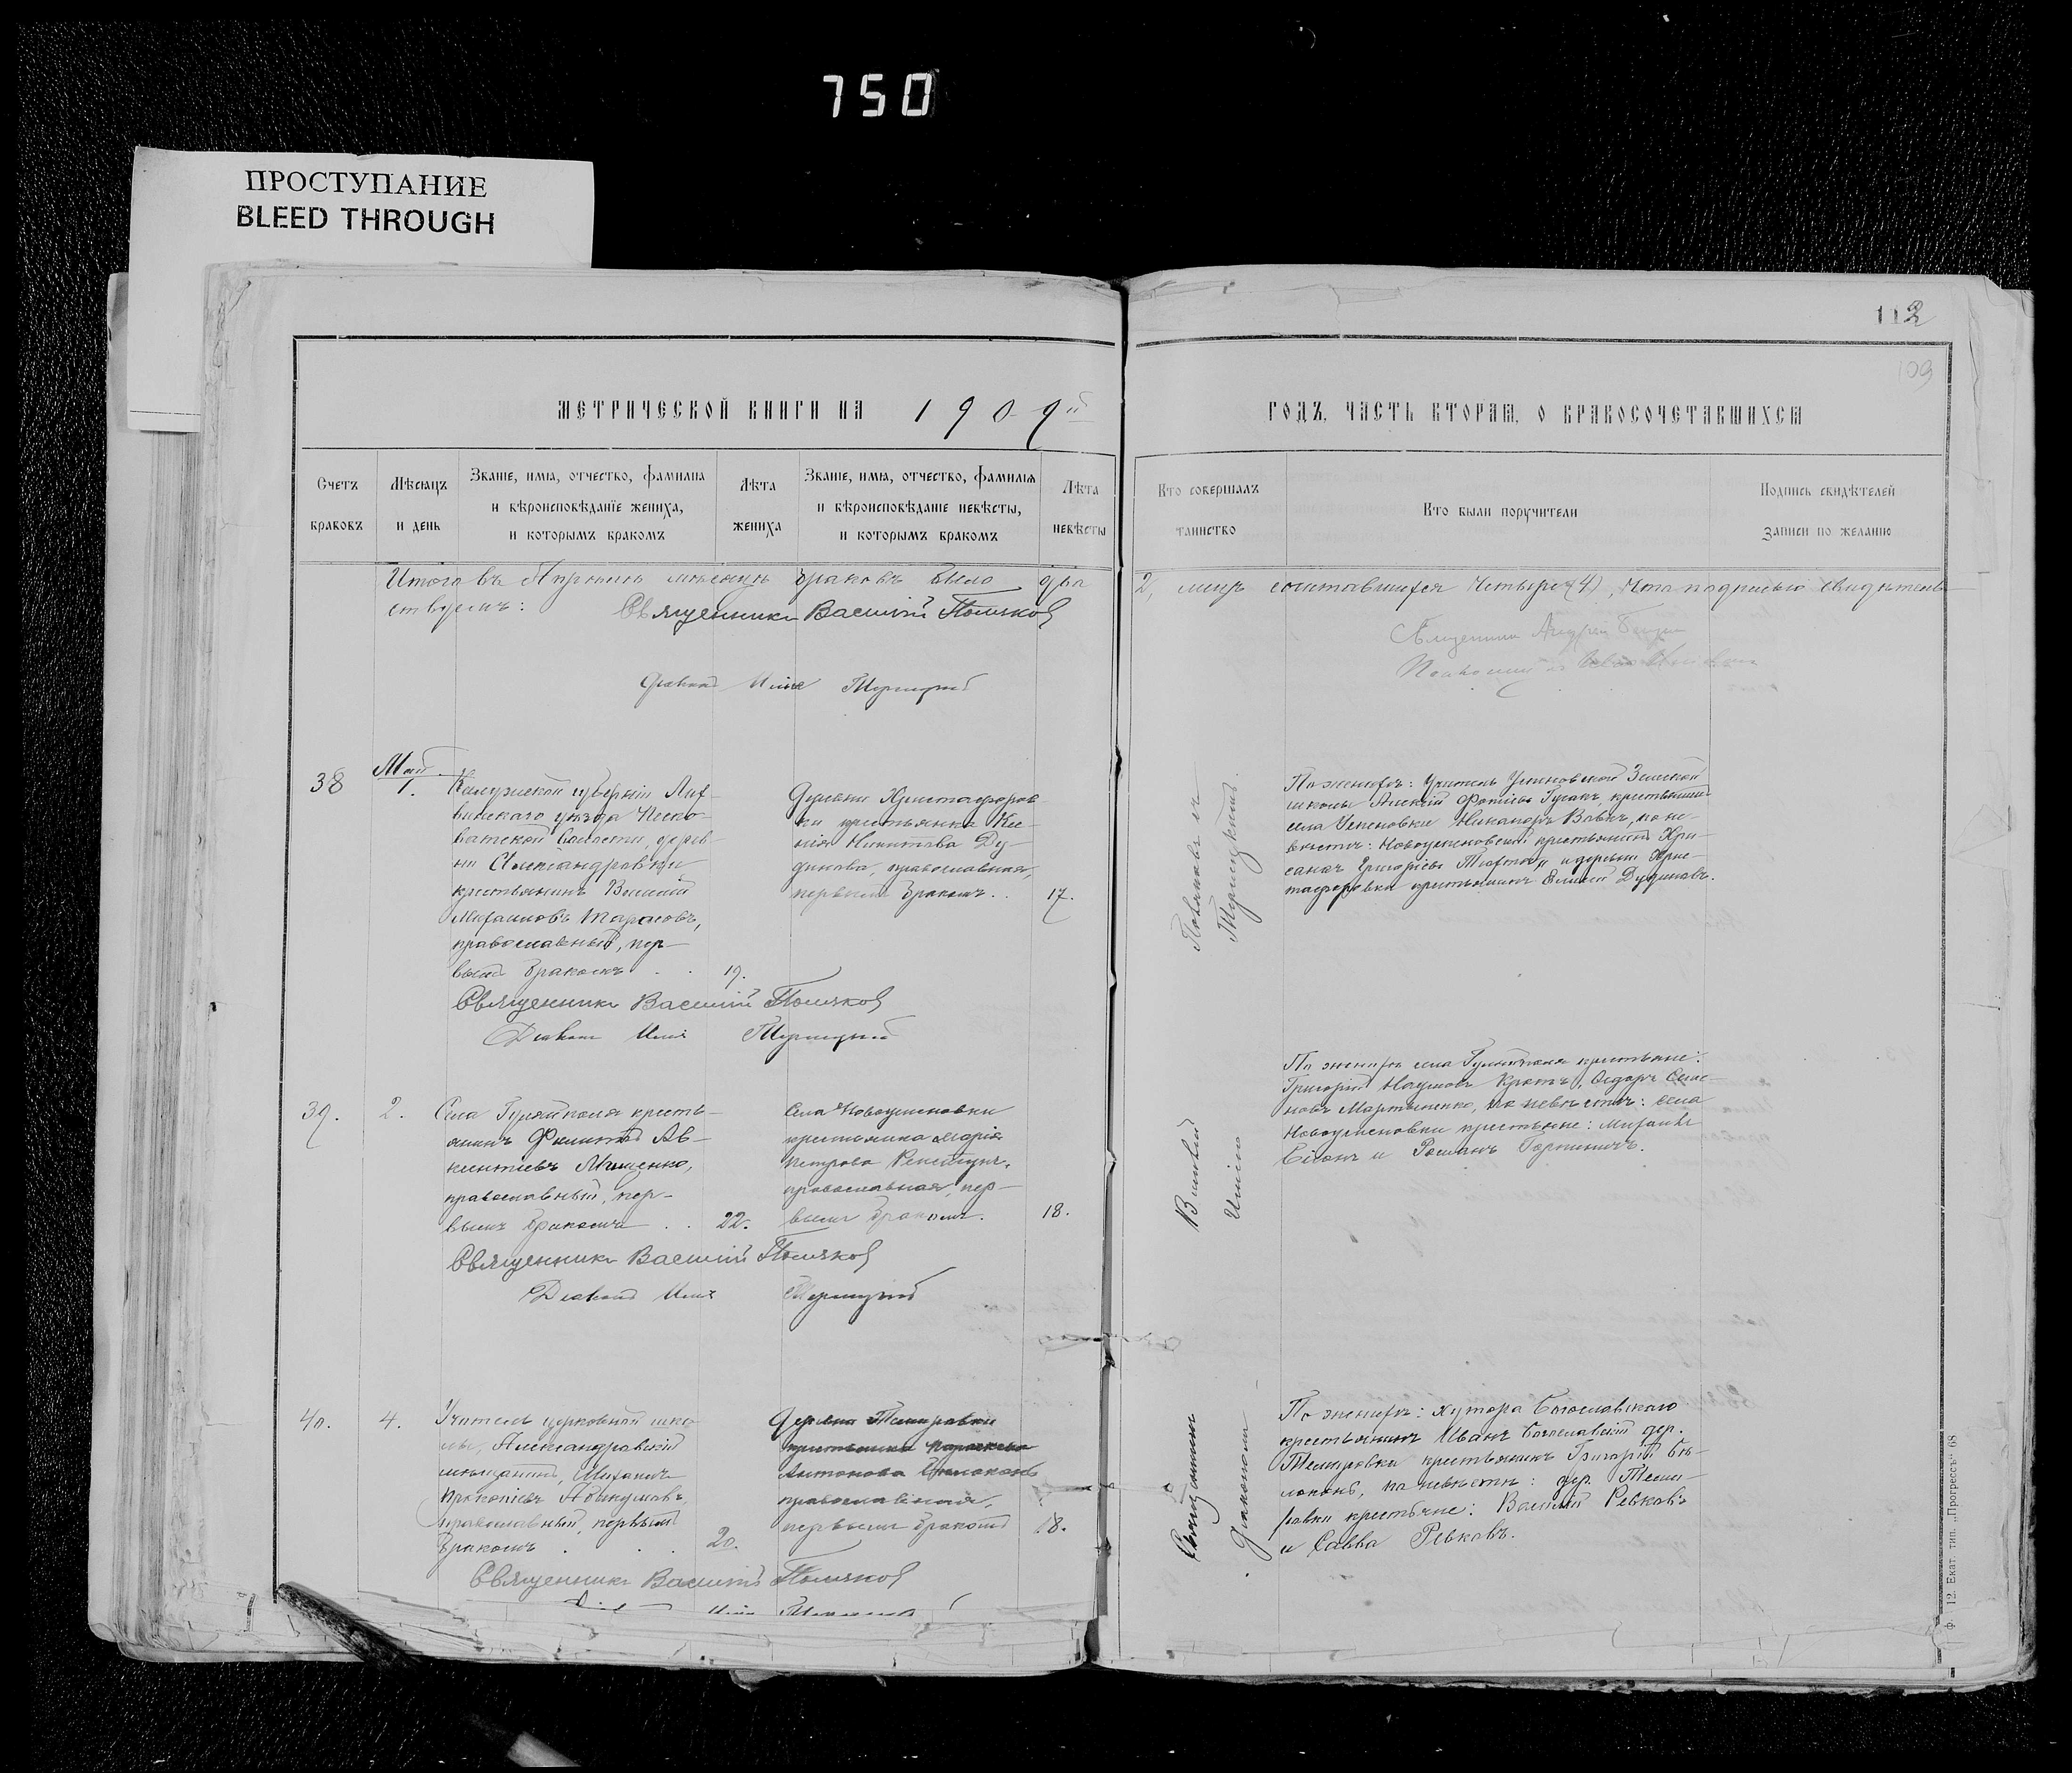 750
ПРОСТУПАНИЕ
BLEED THROUGH
112
109
МЕТРИЧЕСКОЙ КНИГИ НА 1909й ГОДЪ, ЧАСТЬ ВТОРАЯ, О БРАКОСОЧЕТАВШИХСЯ
Счетъ браковъ
Мѣсяцъ и день
Званіе, имя, отчество, фамилія и вѣроисповѣданіе жениха, и которымъ бракомъ
Лѣта жениха
Званіе, имя, отчество, фамилія и вѣроисповѣданіе невѣсты, и которымъ бракомъ
Лѣта невѣсты
Кто совершалъ таинство
Кто были поручители
Подпись свидѣтелей записи по желанію
Итого въ Апрѣлѣ мѣсяцѣ браковъ было два 2, лицъ сочетавшихся четыре (4), что подписью свидѣтель-
ствуемъ: Священникъ Василій Поляковъ
Діаконъ Илья
Священникъ Андрей
38
Май
1.
Калужской губерніи Лих-
винскаго уѣзда Песко-
ватской волости, дерев-
ни Александровки
крестьянинъ Василій
Михаиловъ Тарасовъ,
православный, пер-
вымъ бракомъ . . 19.
Деревни Христофоров-
ки крестьянка Ксе-
нія Никитова Ду-
динова, православная,
первымъ бракомъ . . 17.
Священникъ Василій Поляковъ
Діаконъ Илья
Поляковъ съ
По женихѣ: Учитель Успеновской Земской
школы Алексій Фотіевъ Гусакъ, крестьянинъ
села Успеновки Никаноръ Вовкъ, по не-
вѣстѣ: Новоуспеновскій крестьянинъ Хри-
санфъ Григорьевъ и деревни Хрис-
тофоровки крестьянинъ Дудиновъ.
39.
2.
Села Гуляйполя кресть-
янинъ Филиппъ Ав-
ксентіевъ Мищенко,
православный, пер-
вымъ бракомъ . . 22.
Села Новоуспеновки
крестьянка Марія
Петрова
православная, пер-
вымъ бракомъ. 18.
Священникъ Василій Поляковъ
Діаконъ Илья
По женихѣ села Гуляйполя крестьяне:
Григорій Наумовъ Кротъ, Ѳедоръ Семе-
новъ Мартыненко, по невѣстѣ: села
Новоуспеновки крестьяне: Михаилъ
и Романъ
40.
4.
Учитель церковной шко-
лы, Александровскій
мѣщанинъ, Михаилъ
Прокопіевъ
православный, первымъ
бракомъ . . . 20.
Деревни Темировки
крестьянка Параскева
Антонова
православная,
первымъ бракомъ 18.
Священникъ Василій Поляковъ
Священникъ
Діакономъ
По женихѣ: хутора Богославскаго
крестьянинъ Иванъ Богославскій дер.
Темировки крестьянинъ Григорій Бѣ-
локонь, по невѣстѣ: дер. Теми-
ровки крестьяне: Василій Ревковъ
и Савва Ревковъ.
Ф. 12. Екат. тип. „Прогрессъ" 68